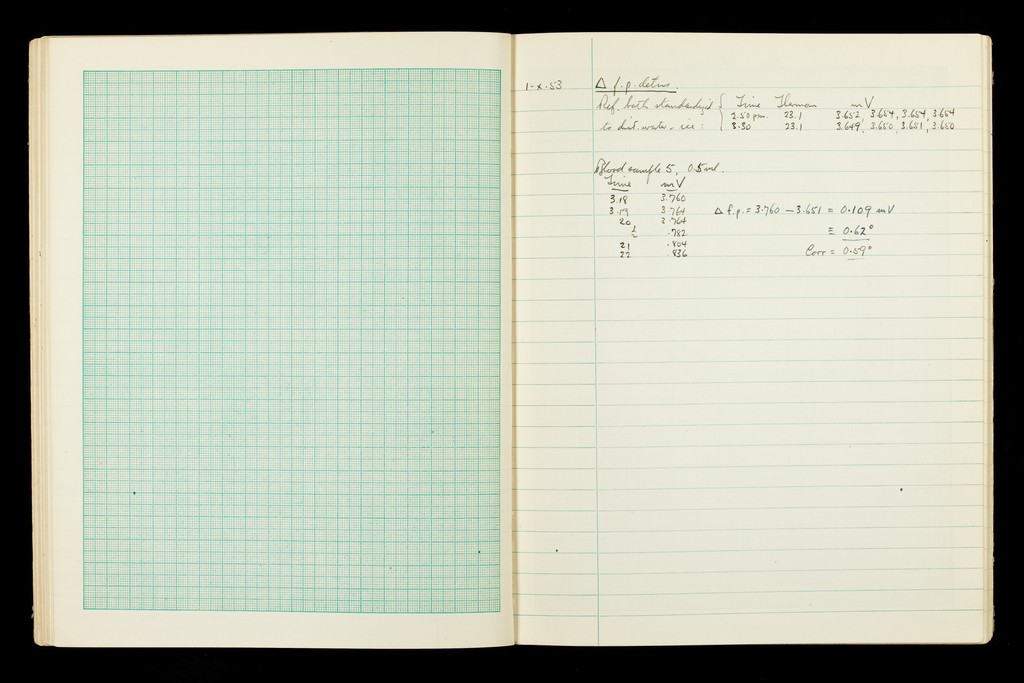 1-X-53 Δ f.p. detns.
Ref. bath standardized { Time Therm mV
2.50 pm. 23.1 3.652, 3.654, 3.654, 3.654
to dist. water - ice : 3.30 23.1 3.649, 3.650, 3.651, 3.650
Blood sample 5, 0.5 ml.
Time mV
3.18 3.760
3.19 3.764 Δ f.p. = 3.760 - 3.651 = 0.109 mV
20 3.764
½ .782 ≡ 0.62°
21 .804 Corr = 0.59°
22 .836